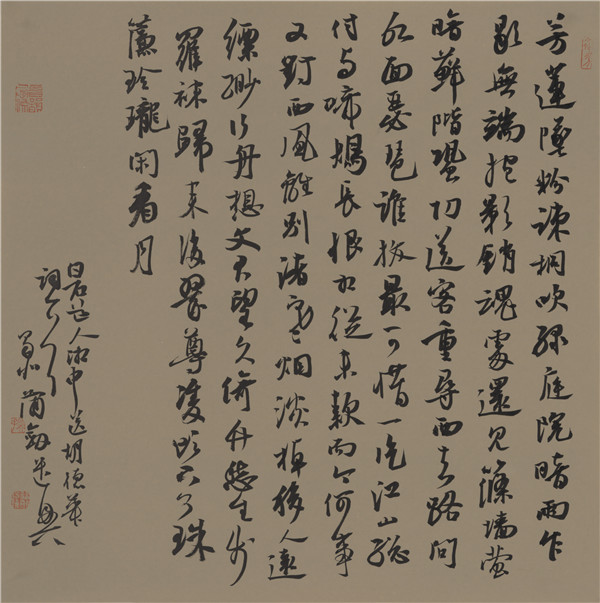 芳蓮墜粉疎桐吹綠庭院暗雨乍
歇無端抱影銷魂處還見篠墻螢
暗蘚階蛩切送客重尋西去路問
水面琵琶誰撥最可惜一片江山總
付与啼鴂長恨相從未款而今何事
又對西風離別渚寒烟淡棹移人遠
縹緲行舟想文君望久倚竹愁生步
羅袜歸來後翠尊雙飲下了珠
簾玲瓏閑看月
人湘中送胡德華
詞
蒲劍